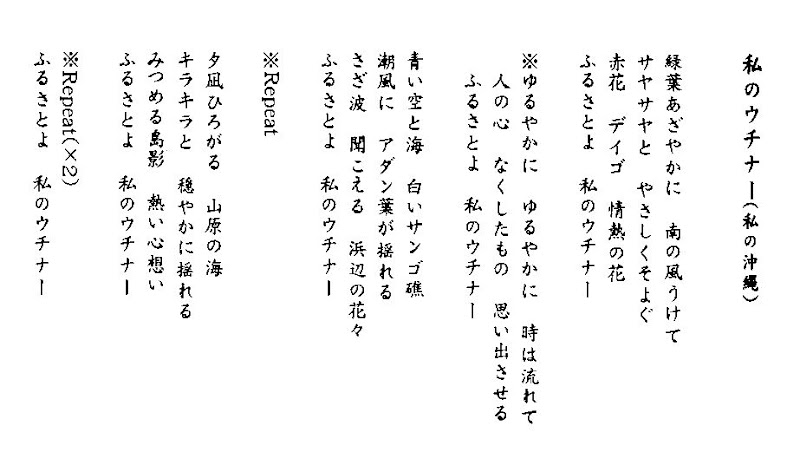 私のウチナー(私の沖縄)
緑葉あざやかに　南の風うけて
サヤサヤと　やさしくそよぐ
赤花　デイゴ　情熱の花
ふるさとよ　私のウチナー
※ゆるやかに　ゆるやかに　時は流れて
人の心　なくしたもの　思い出させる
ふるさとよ　私のウチナー
青い空と海　白いサンゴ礁
潮風に　アダン葉が揺れる
さざ波　聞こえる　浜辺の花々
ふるさとよ　私のウチナー
※Repeat
夕凪ひろがる　山原の海
キラキラと　穏やかに揺れる
みつめる島影　熱い心想い
ふるさとよ　私のウチナー
※Repeat(×2)
ふるさとよ　私のウチナー